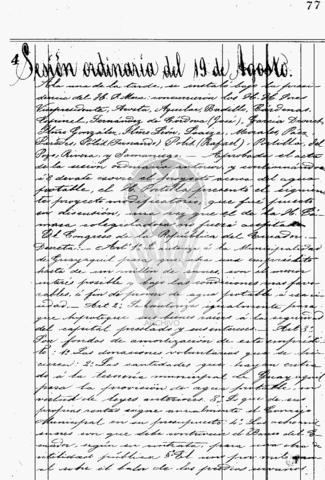 77
4 Sesión ordinaria del 19 de Agosto.
A la una de la tarde, se instaló bajo la presi-
dencia del H.
Vicepresidente, Aguilar, Badillo, Cárdenas,
Espinel, Fernández de Córdova (José), García
Flores González, Flores León, Morales, Páez,
Paredes, Polit (Fernando), Polit (Rafael), Portilla, del
Pozo, Rivera y Samaniego. Aprobada el acta
de la sesión anterior, y continuando
el debate sobre el proyecto acerca del agua
potable, el H. Portilla presentó el siguien-
te proyecto modificatorio, que fué puesto
en discusión, una vez que el de la H. Cá-
mara colegisladora no fuera aceptado:
"El Congreso de la República del Ecuador,
Decreta: Art. 1º Se autoriza á la Municipalidad
de Guayaquil para que un empréstito
hasta de un millón de sucres, con el menor
interés posible y bajo las condiciones más favo-
rables, á fin de proveer de agua potable á esa ciu-
dad. Art. 2º Se la autoriza igualmente para
que hipoteque sus bienes raíces á la seguridad
del capital prestado y sus intereses. Art. 3º
Son fondos de amortización de este emprésti-
to: 1º Las donaciones voluntarias que se hi-
cieren: 2º Las cantidades que hayan entra-
do á la Tesorería municipal de Guayaquil
para la provisión de agua potable, en
virtud de leyes anteriores: 3º Lo que de sus
propias rentas asigne anualmente el Concejo
Municipal en su presupuesto: 4º Las
que debe el Banco del E-
cuador, según su contrato, para una obra de
utilidad pública: 5º El uno por mil que
el valor de los predios urbanos,
ARCHIVO